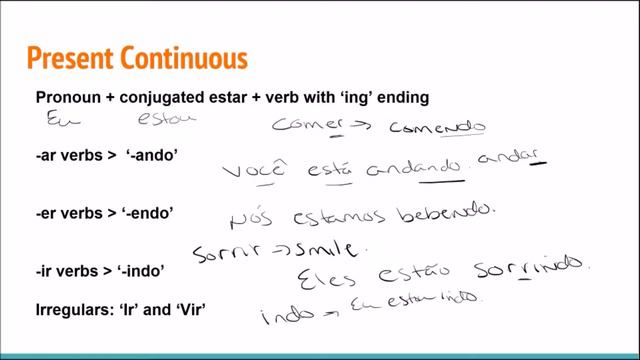 Present Continuous
Pronoun + conjugated estar + verb with ‘ing’ ending
Eu estou comer → comendo
-ar verbs > ‘-ando’
você está andando. andar
-er verbs > ‘-endo’
Nós estamos bebendo.
Sorrir → smile.
-ir verbs > ‘-indo’
Eles estão sorrindo.
Irregulars: ‘Ir’ and ‘Vir’
indo → Eu estou indo.